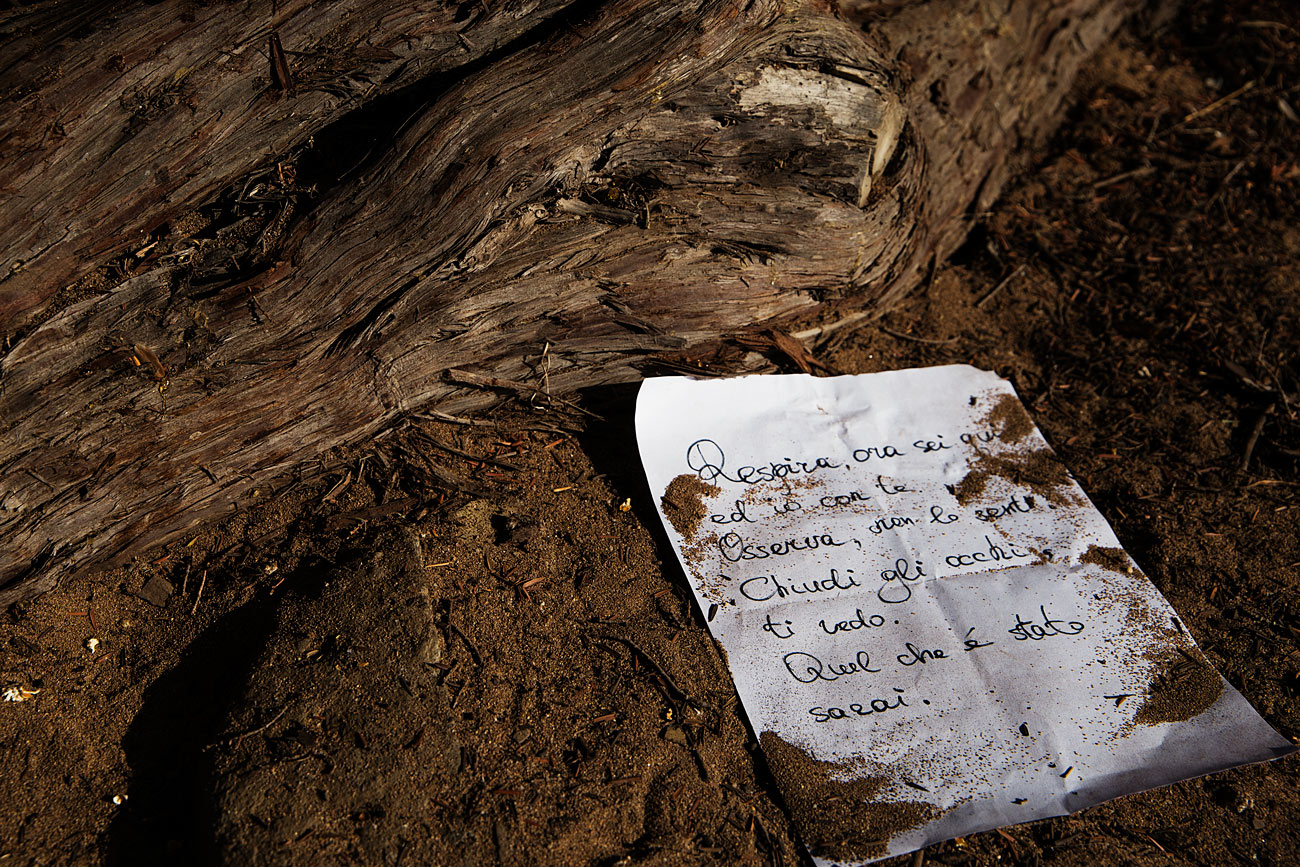 Respira, ora sei qui
ed io con te.
Osserva, non lo senti?
Chiudi gli occhi,
ti vedo.
Quel che è stato
sarai.